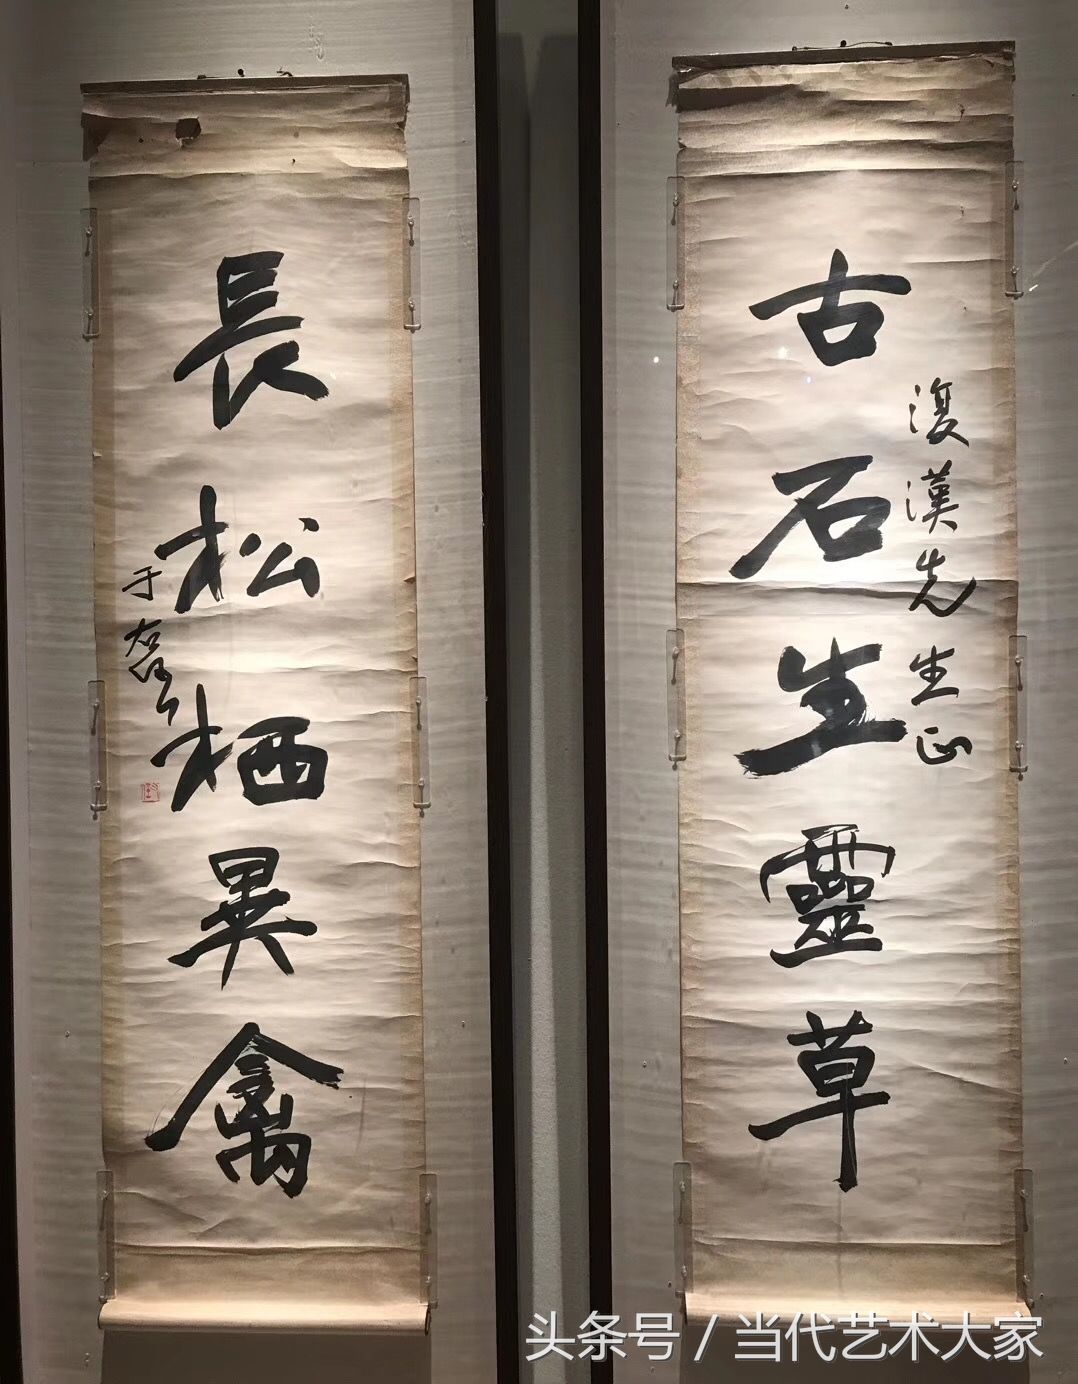 古石生靈草
復漢先生正
長松栖異禽
于右任
头条号 / 当代艺术大家